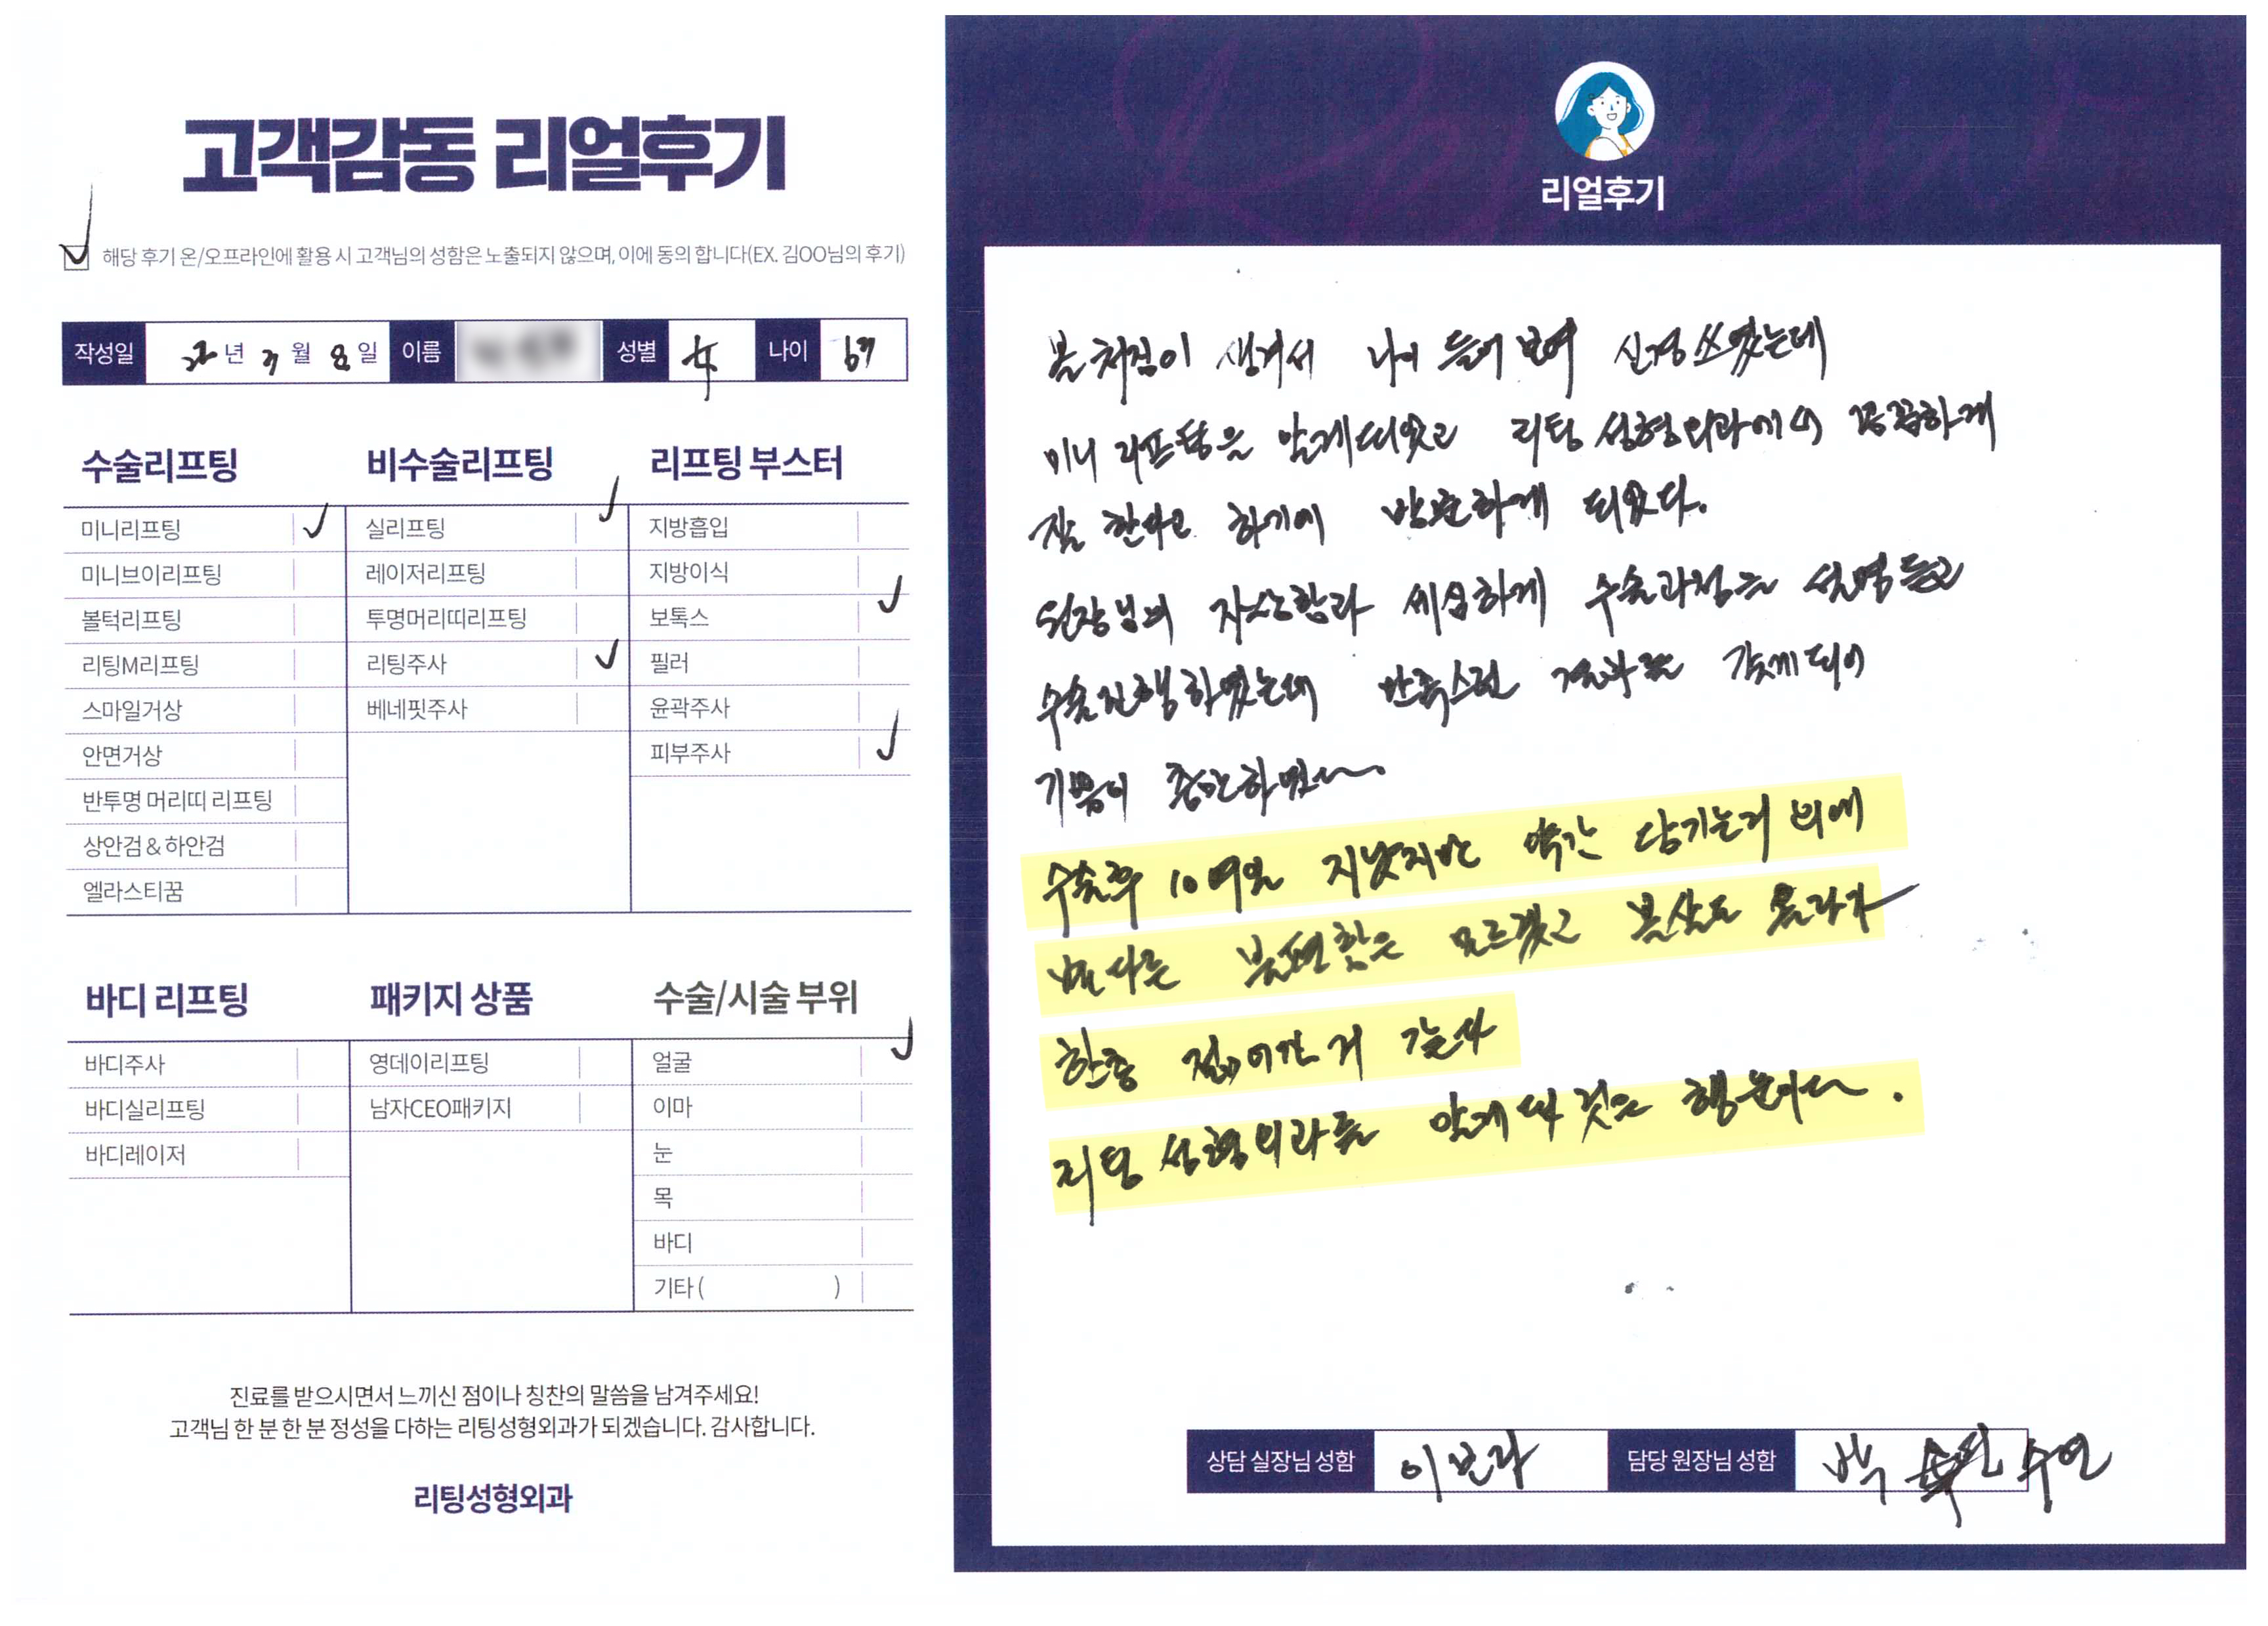 고객감동 리얼후기
해당 후기 온/오프라인에 활용 시 고객님의 성함은 노출되지 않으며, 이에 동의 합니다(EX. 김OO님의 후기)
작성일 22년 3월 8일 이름 성별 女 나이 67
수술리프팅
미니리프팅
미니브이리프팅
볼턱리프팅
리팅M리프팅
스마일거상
안면거상
반투명 머리띠 리프팅
상안검 & 하안검
엘라스티꿈
비수술리프팅
실리프팅
레이저리프팅
투명머리띠리프팅
리팅주사
베네핏주사
리프팅 부스터
지방흡입
지방이식
보톡스
필러
윤곽주사
피부주사
바디 리프팅
바디주사
바디실리프팅
바디레이저
패키지 상품
영데이리프팅
남자CEO패키지
수술/시술 부위
얼굴
이마
눈
목
바디
기타 ( )
진료를 받으시면서 느끼신 점이나 칭찬의 말씀을 남겨주세요!
고객님 한 분 한 분 정성을 다하는 리팅성형외과가 되겠습니다. 감사합니다.
리팅성형외과
리얼후기
볼처짐이 생겨서 나이 들어 보여 신경 쓰였는데
미니 리프팅을 알게되었고 리팅 성형외과에서 꼼꼼하게
잘 한다고 하기에 방문하게 되었다.
원장님의 자상함과 세심하게 수술과정을 설명 듣고
수술진행 하였는데 만족스런 결과를 갖게 되어
기쁨이 충만하였다.
수술후 10여일 지났지만 약간 당기는거 외에
별 다른 불편함은 모르겠고 볼살도 올라가
한층 젊어간 거 같다
리팅 성형외과를 알게 된 것은 행운이다.
상담 실장님 성함 이보라 담당 원장님 성함 박 수연